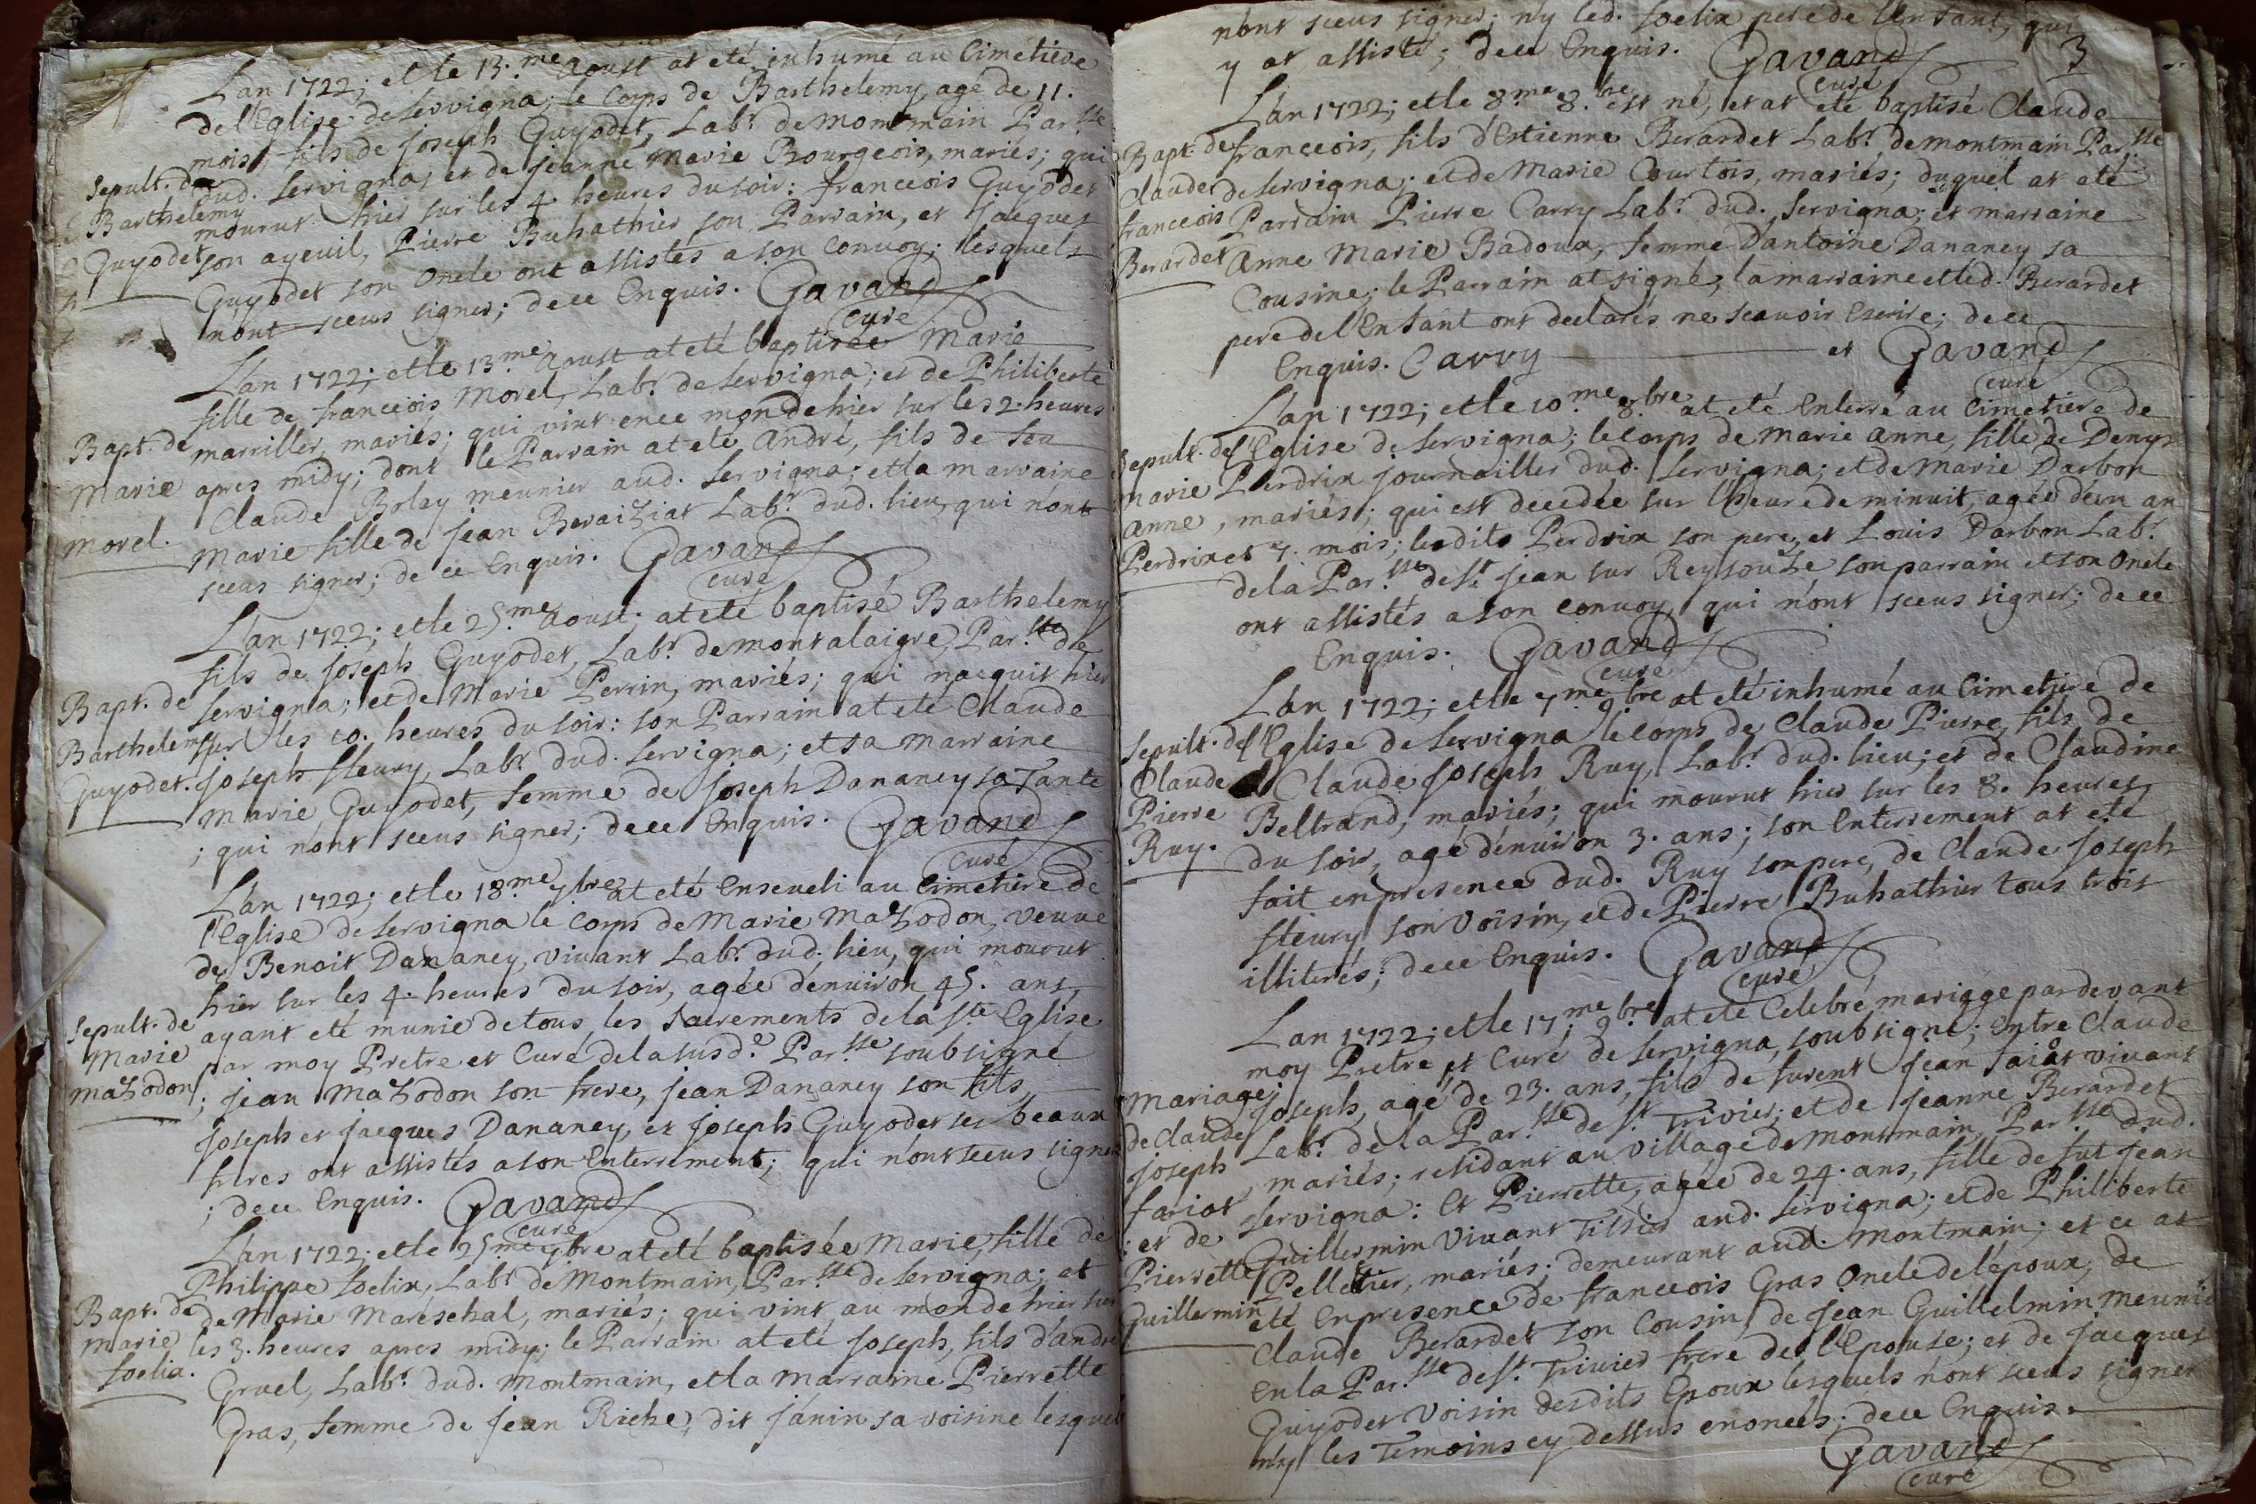 Lan 1722; et le 13.me aoust at eté inhumé au Cimetiere
del'Eglise de servigna; le corps de Barthelemy, agé de 11.
mois, fils de joseph Guyodet, Labr. de montmain Par.sse
Sepult. de
dud. servigna; et de jeanne marie Bourgeois, mariés; qui
Barthelemy
mourut hier sur les 4. heures du soir: franceois Guyodet
Guyodet
son ayeuil, Pierre Buhathier son Parrain, et jacques
Guyodet son oncle ont assistés a son convoy; lesquels
nont sceus signer; de ce Enquis. Gavand
curé
Lán 1722; et le 13.me aoust at eté baptisée Marie
fille de franceois Morel, Labr. de servigna; et de Philiberte
Bapt. de
marriller, mariés; qui vint en ce monde hier sur les 2. heures
Marie
apres midy; dont le Parrain at eté andré, fils de feu
Claude Brlay meunier aud. servigna; et la marraine
morel.
Marie fille de jean Bevaiziat Labr. dud. lieu, qui nont
sceus signer; de ce Enquis. Gavand
curé
Lán 1722; et le 25.me aoust; at eté baptisé Barthelemy
fils de joseph Guyodet, Labr. de montalaigre, Par.sse de
Bapt. de
servigna; et de Marie Perrin, mariés; qui nacquit hier
Barthelemy
sur les 10. heures du soir: son Parrain at eté Claude
Guyodet.
joseph fleury, Labr. dud. servigna; et sa marraine
marie Guyodet, femme de joseph Dananey sa Tante
; qui nónt sceus signer; de ce Enquis. Gavand
curé
Lán 1722; et le 18.me 7.bre at eté Enseveli au Cimetiere de
l'Eglise de servigna le corps de Marie Mazodon, veuve
de Benoit Dananey, vivant Labr. dud. lieu, qui mourut
hier sur les 4. heures du soir, agée dénviron 45. ans,
Sepult. de
ayant eté munie de tous les sacrements de la Ste Eglise
Marie
par moy Pretre et Curé de la susde. Par.sse soubsigné
mazodon
; jean Mazodon son frere, jean Dananey son fils,
joseph et jacques Dananey, et joseph Guyodet ses beaux
freres ont assistés a son Enterrement; qui nónt sceus signer
; de ce Enquis. Gavand
curé
Lán 1722; et le 25.me 7.bre at eté baptisée Marie, fille de
Philippe foelix, Labr. de Montmain, Par.sse de servigna; et
Bapt. de
de Marie Mareschal, mariés; qui vint au monde hier sur
marie
les 3. heures apres midy; le Parrain at eté joseph, fils d'andré
foelix.
Gruel, Labr. dud. montmain, et la marraine Pierrette
Gras, femme de jean Riche, dit jánin sa voisine lesquels
nónt sceus signer; n'y led. foelix pere de l'Enfant, qui
3
y at assisté; de ce Enquis. Gavand
curé
Lán 1722; et le 8.me 8.bre est né, et at eté baptisé Claude
Bapt. de
franceois, fils d'Estienne Berardet Labr. de montmain Par.sse
Claude
de servigna; et de Marie Courtois, mariés; duquel at eté
franceois
Parrain Pierre Carry Labr. dud. servigna; et marraine
Berardet
anne Marie Badoux, femme D'antoine Dananey sa
Cousine; le Parrain at signé; la marraine et led. Berardet
pere de l'Enfant ont declarés ne scavoir Escrire; de ce
Enquis. Carry et Gavand
curé
Lán 1722; et le 10.me 8.bre at eté Enterré au Cimetiere de
Sepult. de
l'Eglise de servigna; le corps de marie anne, fille de Denys
marie
Perdrix journailler dud. servigna; et de Marie Darbon
anne
, mariés; qui est decedée sur l'heure de minuit, agée d'un an
Perdrix
et 7. mois; lesdits Perdrix son pere, et Louis Darbon Labr.
de la Par.sse de St jean sur Reysouze son parrain et son oncle
ont assistés a son convoy, qui nónt sceus signer; de ce
Enquis. Gavand
curé
Lán 1722; et le 7.me 9.bre at eté inhumé au Cimetiere de
Sepult. de
l'Eglise de servigna le corps de Claude Pierre, fils de
Claude
Claude joseph Ruy, Labr. dud. lieu; et de Claudine
Pierre
Beltrand, mariés; qui mourut hier sur les 8. heures
Ruy.
du soir, agé dénviron 3. ans; son Enterrement at eté
fait en presence dud. Ruy son pere, de Claude joseph
fleury son voisin, et de Pierre Buhathier tous trois
illiterés; de ce Enquis. Gavand
curé
Lan 1722; et le 17.me 9.bre at eté Celebré mariage pardevant
moy Pretre et Curé de servigna, soubsigné; Entre Claude
Mariage
joseph, agé de 23. ans, fils de furent jean faiot vivant
de Claude
Labr. de la Par.sse de St. Trivier; et de jeanne Berardet
joseph
, mariés; residant au village de montmain, Par.sse dud.
fariot
servigna: Et Pierrette, agée de 24. ans, fille de fut jean
; et de
Guillermin vivant Tissier aud. servigna; et de Philiberte
Pierrette
Pelletier, mariés; demeurant aud. montmain; et ce at
Guillermin
eté En presence de franceois Gras oncle de l'époux, de
Claude Berardet son Cousin, de jean Guillelmin meunier
En la Par.sse de St. Trivier frere de l'Epouse; et de jacques
Guyodet voisin desdits Epoux lesquels nónt sceus signer
n'y les Temoins cy dessus enoncés; de ce Enquis.
Gavand
curé